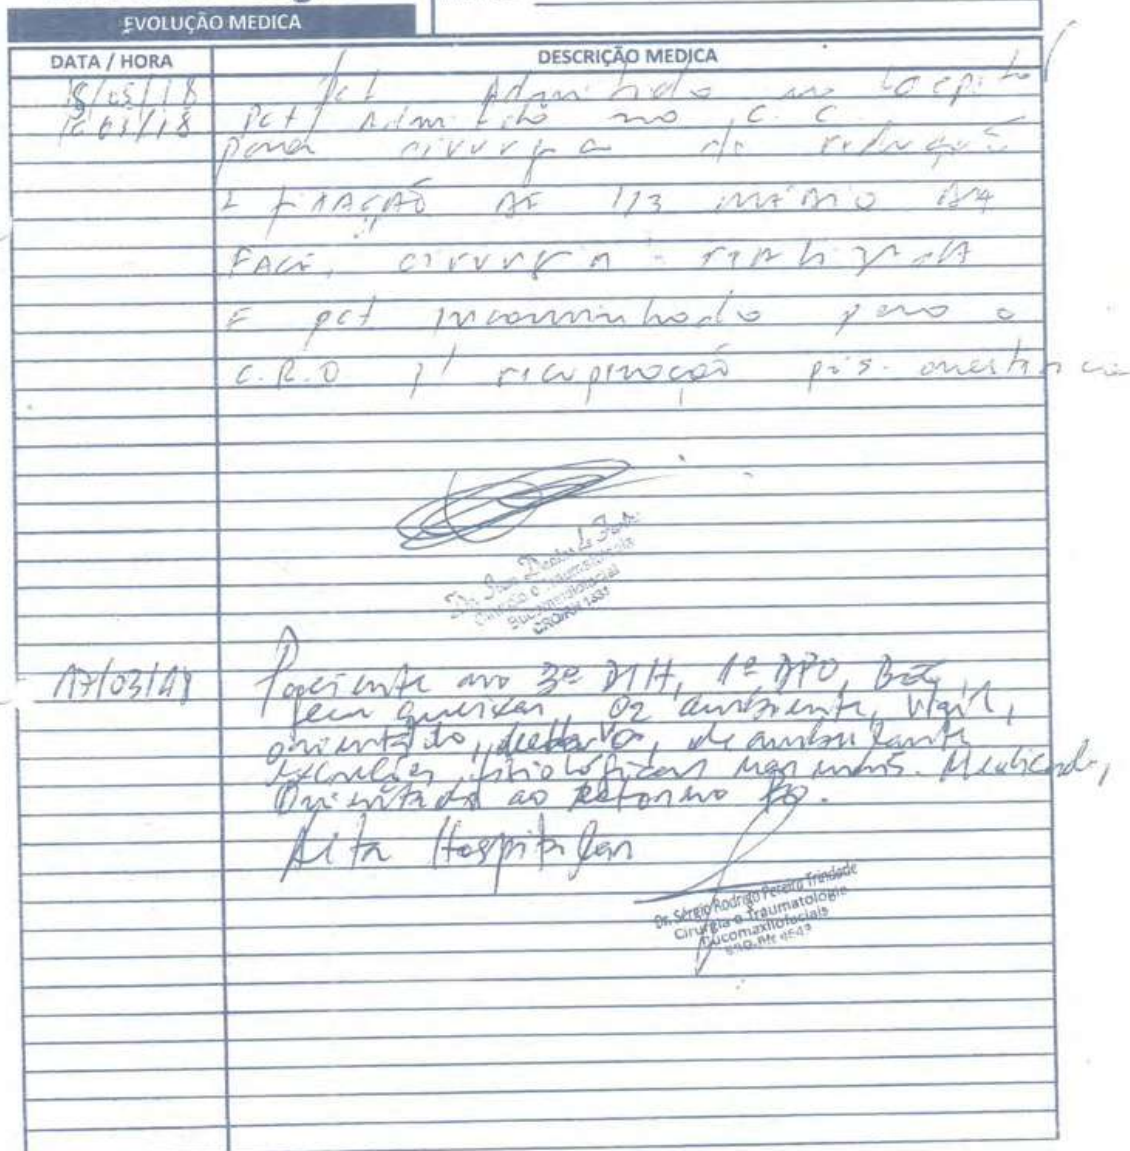 EVOLUÇÃO MEDICA
DATA / HORA
DESCRIÇÃO MEDICA
15/03/18 Pct Admitido no Hospital
16/03/18 Pct Admitido no C. C.
para cirurgia de redução
E FIXAÇÃO DE 1/3 MÉDIO DA
FACE, cirurgia realizada
E pct incaminhado para o
C.R.O p/ recuperação pós-anestésica
Cirurgia e Traumatologia
Bucomaxilofacial
CRO/RN
17/03/18 Paciente no 3º DIH, 1º DPO, BEG,
sem queixas, O2 ambiente, vigil,
orientado, deambulante
excreções fisiológicas normais. Medicado,
Orientado ao Retorno PO.
Alta Hospitalar
Dr. Sérgio Rodrigo Pereira Trindade
Cirurgia e Traumatologia
Bucomaxilofaciais
CRO-RN 4543